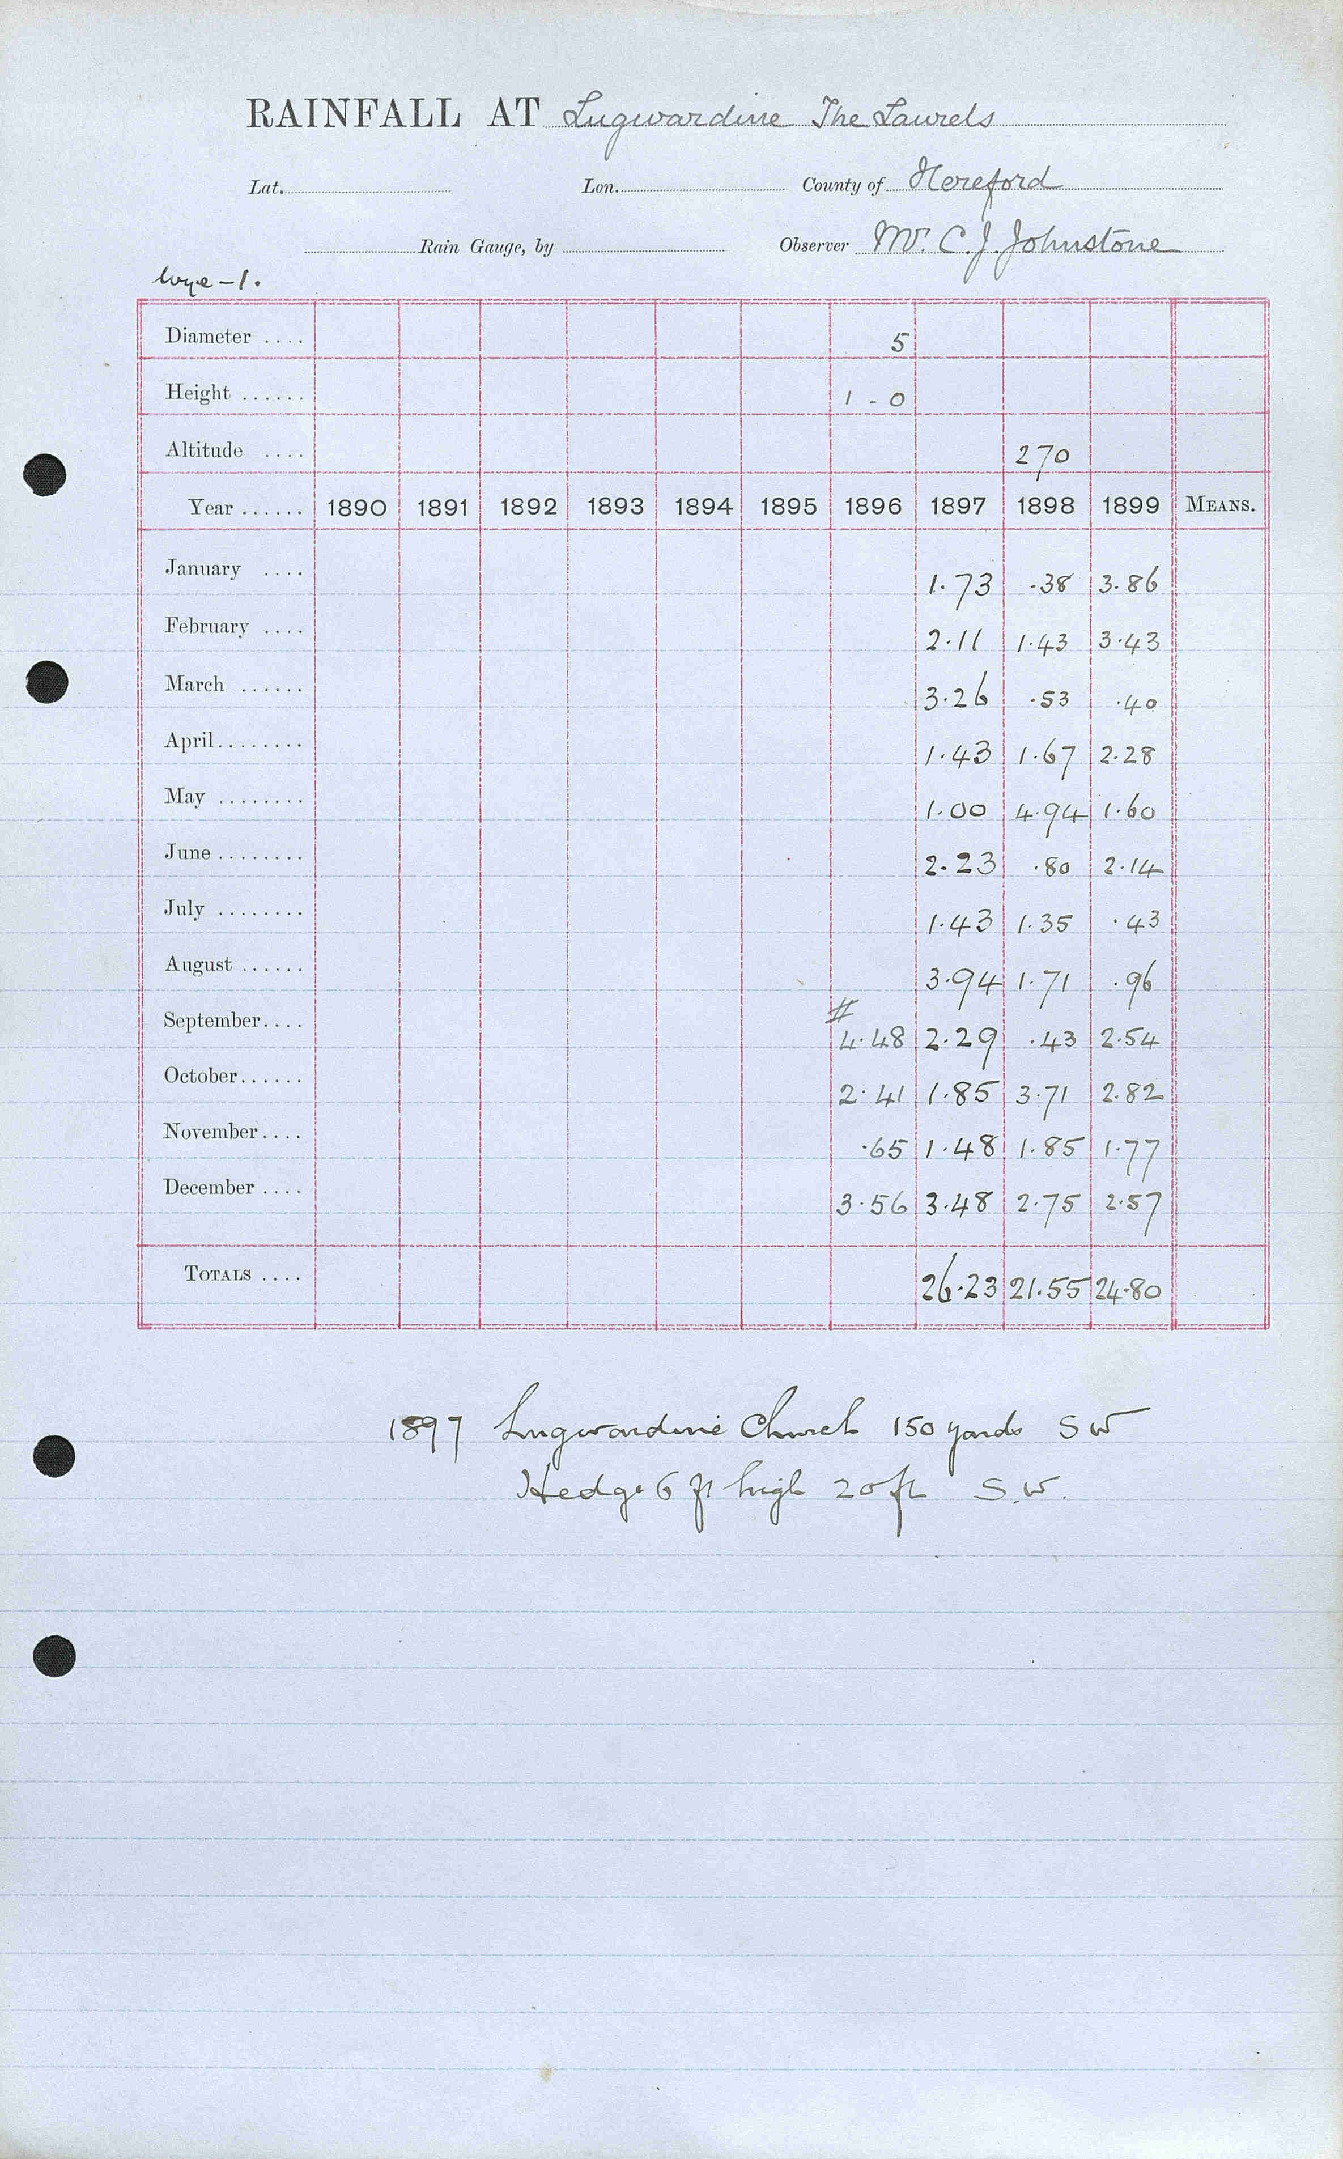 RAINFALL AT Lugwardine The Laurels
Lat. Lon. County of Hereford
Rain Gauge, by Observer Mr. C. J. Johnstone
Wye-1.
Diameter .... 5
Height ...... 1 - 0
Altitude .... 270
Year ...... 1890 1891 1892 1893 1894 1895 1896 1897 1898 1899 MEANS.
January .... 1.73 .38 3.86
February .... 2.11 1.43 3.43
March ...... 3.26 .53 .40
April........ 1.43 1.67 2.28
May ........ 1.00 4.94 1.60
June ........ 2.23 .80 2.14
July ........ 1.43 1.35 .43
August ...... 3.94 1.71 .96
#
September.... 4.48 2.29 .43 2.54
October...... 2.41 1.85 3.71 2.82
November.... .65 1.48 1.85 1.77
December .... 3.56 3.48 2.75 2.57
TOTALS .... 26.23 21.55 24.80
1897 Lugwardine Church 150 yards SW
Hedge 6 ft high 20 ft S.W.